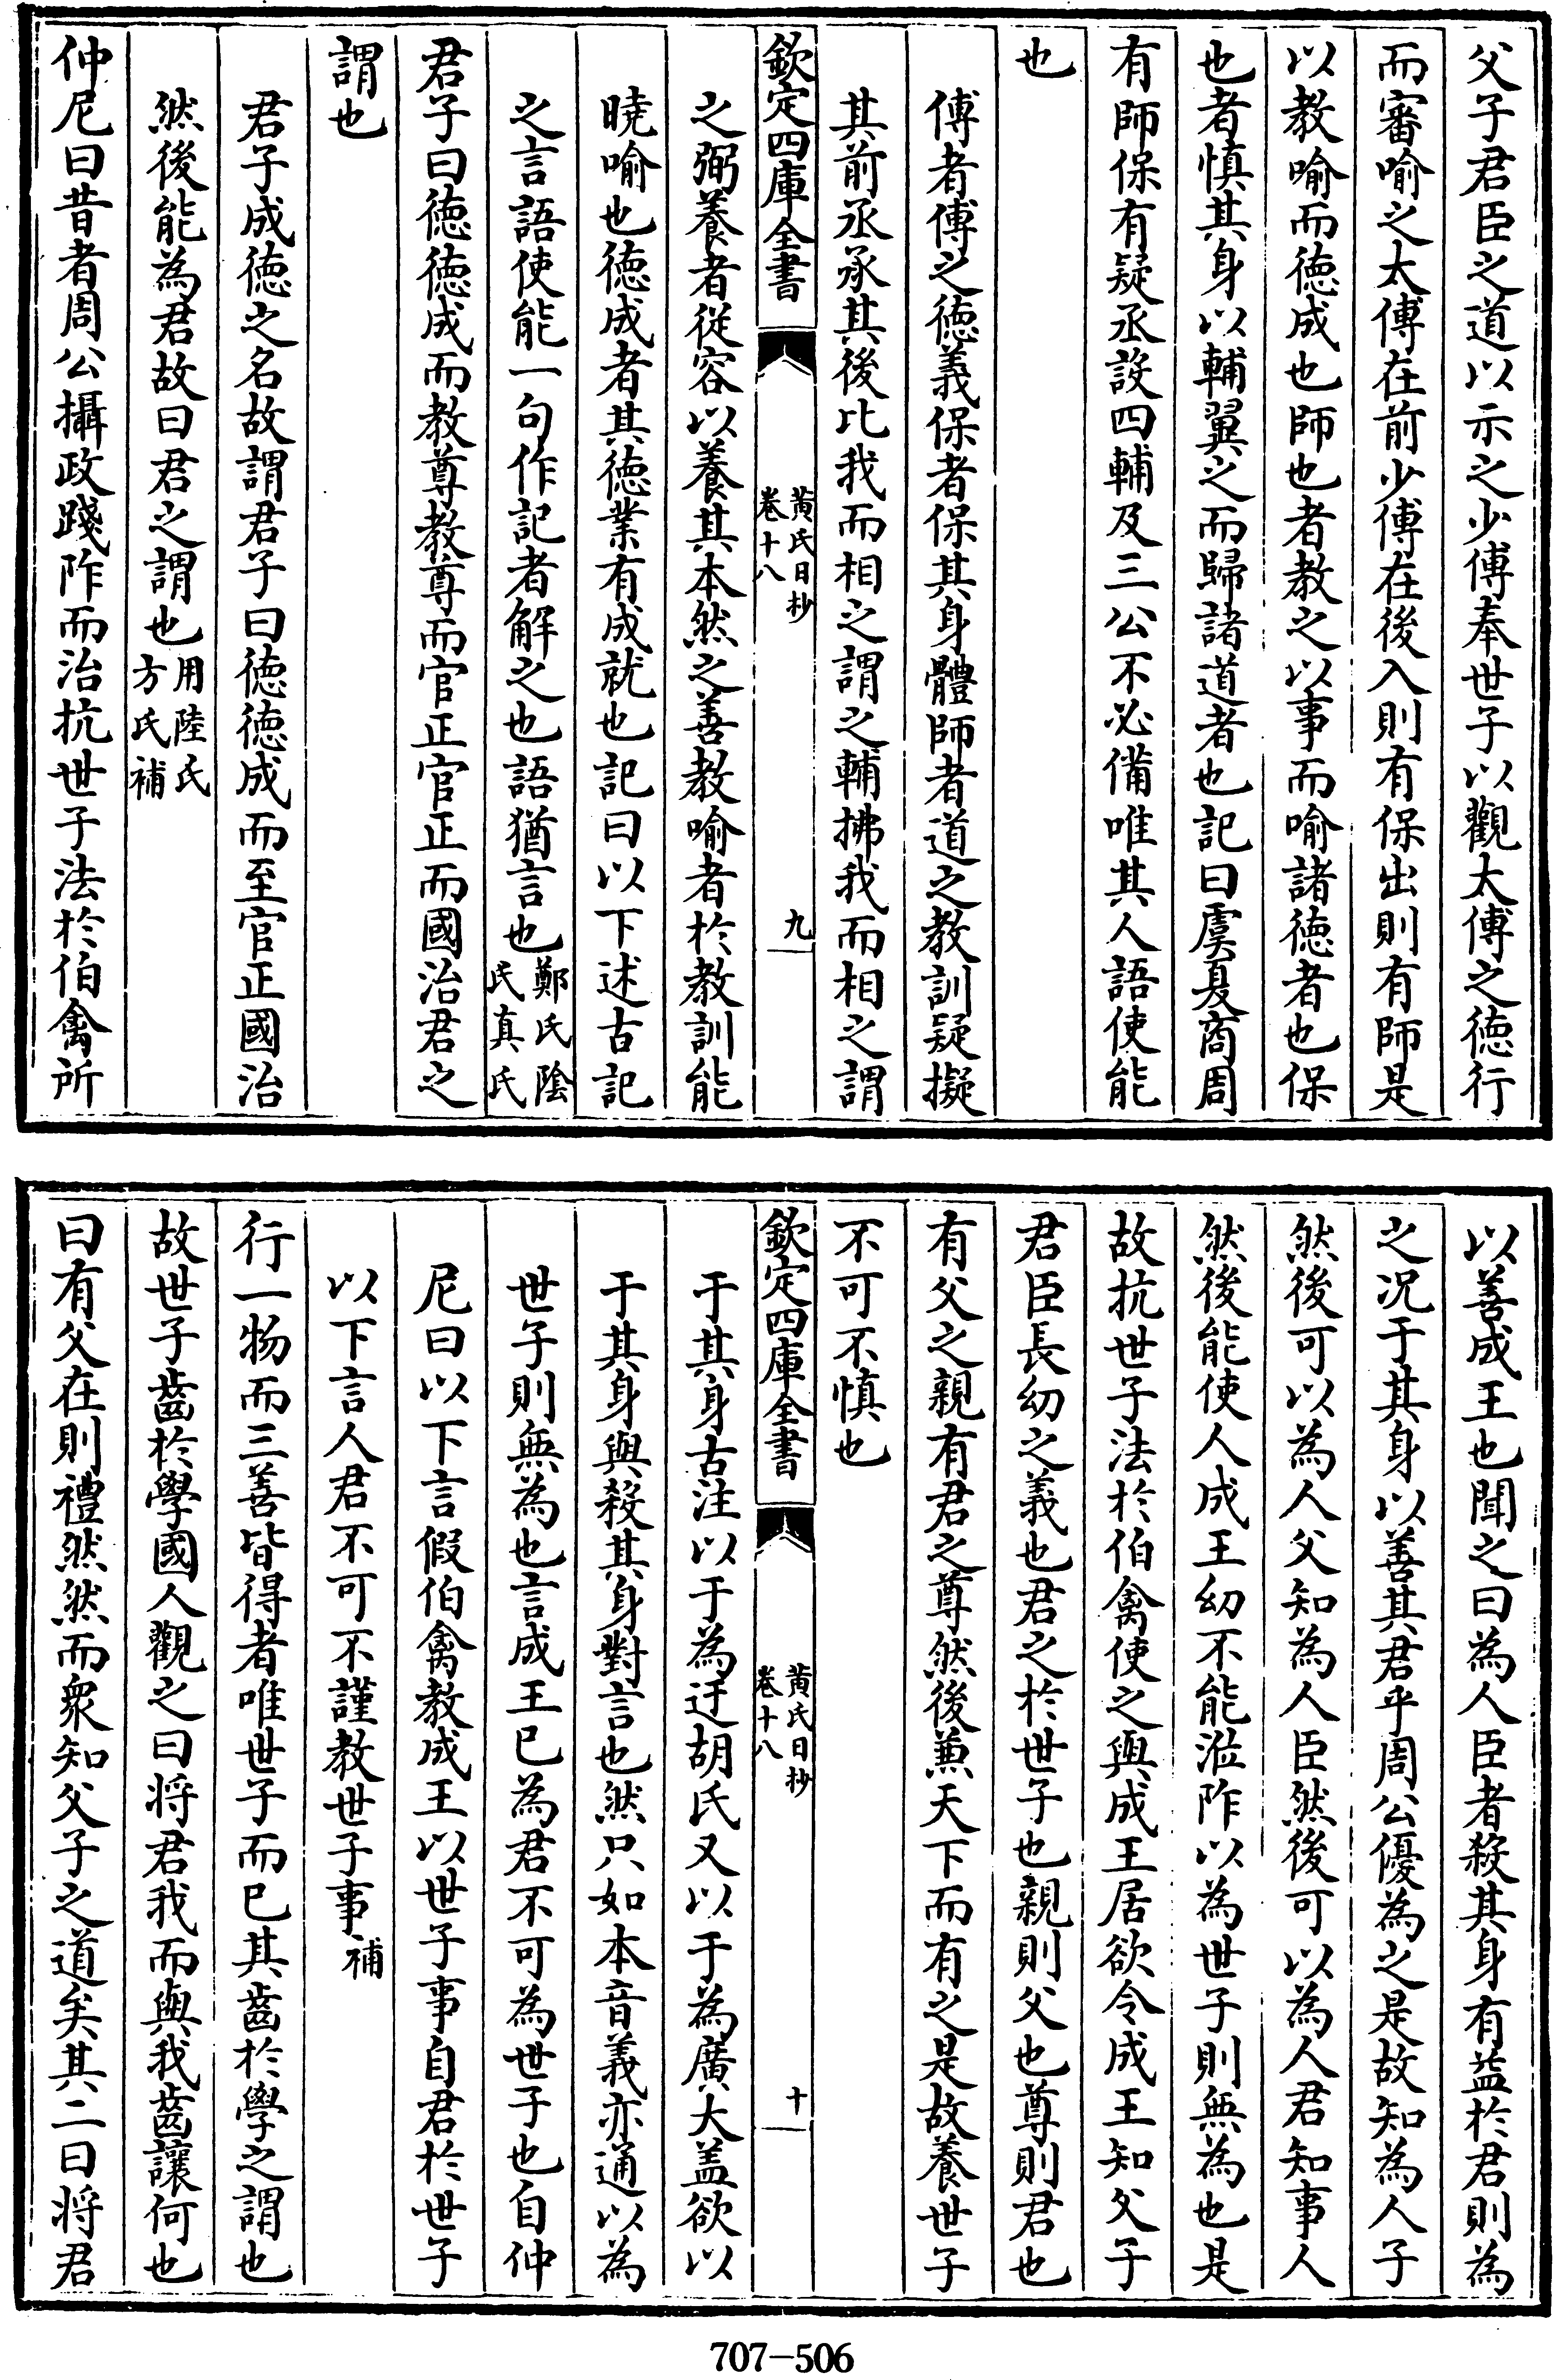 父子君臣之道以示之少傅奉世子以觀太傅之徳行
而審喻之太傅在前少傅在後入則有保出則有師是
以教喻而徳成也師也者教之以事而喻諸徳者也保
也者慎其身以輔翼之而歸諸道者也記曰虞夏商周
有師保有疑丞設四輔及三公不必備唯其人語使能
也
傅者傅之徳義保者保其身體師者道之教訓疑擬
其前丞承其後比我而相之謂之輔拂我而相之謂
欽定四庫全書
黃氏日抄
卷十八
九
之弼養者從容以養其本然之善教喻者於教訓能
曉喻也徳成者其徳業有成就也記曰以下述古記
之言語使能一句作記者解之也語猶言也鄭氏陰
氏真氏
君子曰徳徳成而教尊教尊而官正官正而國治君之
謂也
君子成徳之名故謂君子曰徳徳成而至官正國治
然後能為君故曰君之謂也用陸氏
方氏補
仲尼曰昔者周公攝政踐阼而治抗世子法於伯禽所
以善成王也聞之曰為人臣者殺其身有益於君則為
之况于其身以善其君乎周公優為之是故知為人子
然後可以為人父知為人臣然後可以為人君知事人
然後能使人成王幼不能涖阼以為世子則無為也是
故抗世子法於伯禽使之與成王居欲令成王知父子
君臣長幼之義也君之於世子也親則父也尊則君也
有父之親有君之尊然後兼天下而有之是故養世子
不可不慎也
欽定四庫全書
黃氏日抄
卷十八
十
于其身古注以于為迂胡氏又以于為廣大盖欲以
于其身與殺其身對言也然只如本音義亦通以為
世子則無為也言成王已為君不可為世子也自仲
尼曰以下言假伯禽教成王以世子事自君於世子
以下言人君不可不謹教世子事補
行一物而三善皆得者唯世子而已其齒於學之謂也
故世子齒於學國人觀之曰将君我而與我齒讓何也
曰有父在則禮然然而衆知父子之道矣其二曰将君
707-506